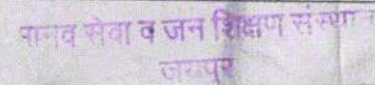 मानव सेवा व जन शिक्षण संस्थान
जयपुर